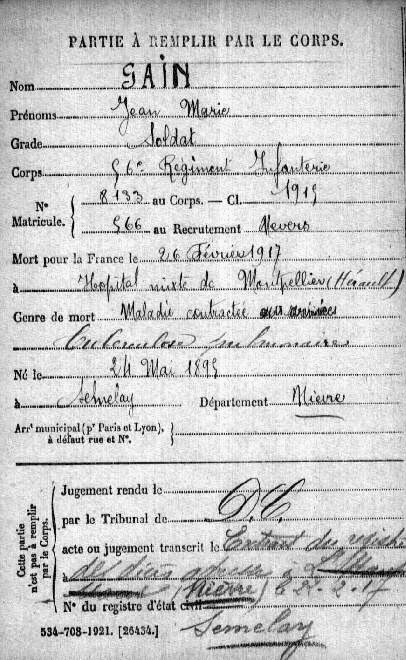 PARTIE À REMPLIR PAR LE CORPS.
Nom GAIN
Prénoms Jean Marie
Grade Soldat
Corps 56e Regiment Infanterie
N° Matricule. { 8133 au Corps. — Cl. 1915
566 au Recrutement Nevers
Mort pour la France le 26 Février 1917
à Hopital mixte de Montpellier (Hérault)
Genre de mort Maladie contractée aux armées
Tuberculose pulmonaire
Né le 24 Mai 1895
à Semelay Département Nièvre
Arrt municipal (pr Paris et Lyon),
à défaut rue et N°.
Cette partie
n'est pas à remplir
par le Corps.
Jugement rendu le
par le Tribunal de D.C.
acte ou jugement transcrit le Extrait du registre
des
à (Nièvre)
N° du registre d'état civil
Semelay
534-708-1921. [26434.]